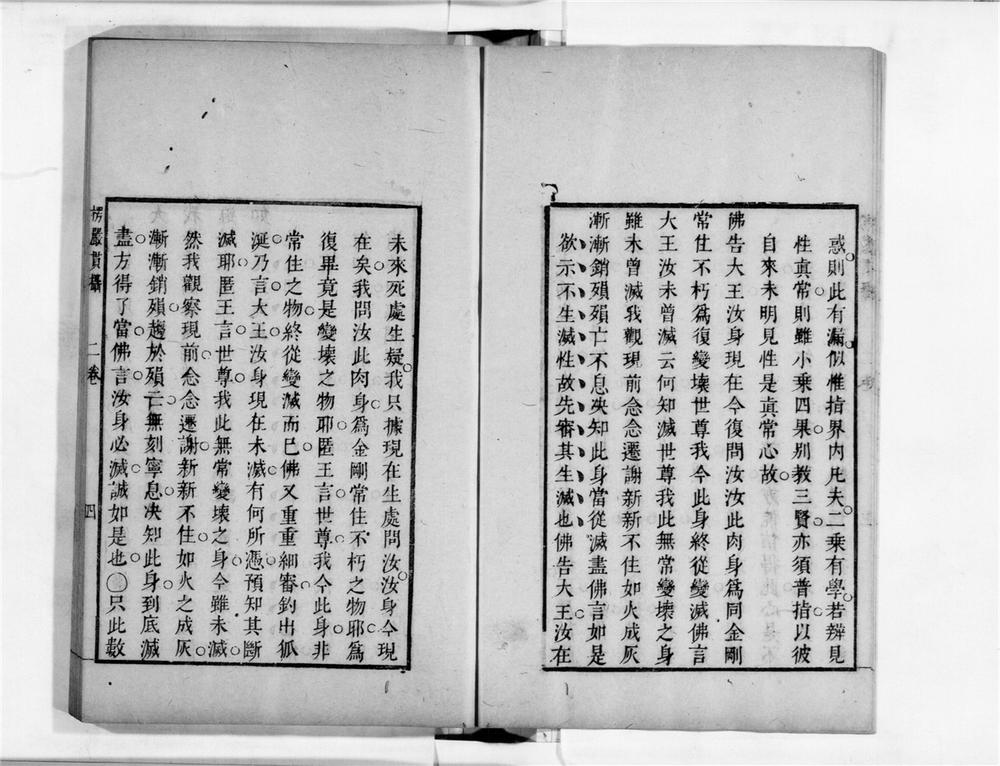 惑則此有漏似惟指界內凡夫二乗有學若辨見
性真常則雖小乗四果別教三賢亦須普指以彼
自來未明見性是真常心故
佛告大王汝身現在今復問汝汝此肉身為同金剛
常住不朽為復變壞世尊我今此身終從變滅佛言
大王汝未曾滅云何知滅世尊我此無常變壞之身
雖未曾滅我觀現前念念遷謝新新不住如火成灰
漸漸銷殞殞亡不息決知此身當從滅盡佛言如是
欲示不生滅性故先審其生滅也佛告大王汝在
未來死處生疑我只據現在生處問汝汝身今現
在矣我問汝此肉身為金剛常住不朽之物耶為
復畢竟是變壞之物耶匿王言世尊我今此身非
常住之物終從變滅而已佛又重重細審釣出狐
涎乃言大王汝身現在未滅有何所憑預知其斷
滅耶匿王言世尊我此無常變壞之身今雖未滅
然我觀察現前念念遷謝新新不住如火之成灰
漸漸銷殞趨於殞亡無刻寧息決知此身到底滅
盡方得了當佛言汝身必滅誠如是也○只此數
楞嚴貫攝 二卷 四